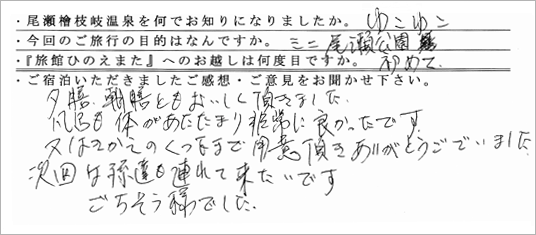 ・尾瀬檜枝岐温泉を何でお知りになりましたか。 ゆこゆこ
・今回のご旅行の目的はなんですか。 ミニ尾瀬公園
・『旅館ひのえまた』へのお越しは何度目ですか。 初めて
・ご宿泊いただきましたご感想・ご意見をお聞かせ下さい。
夕膳、朝膳ともおいしく頂きました。
風呂も体があたたまり非常に良かったです
又はきかえのくつ下まで用意頂きありがとうございました
次回は孫達も連れて来たいです
ごちそう様でした。